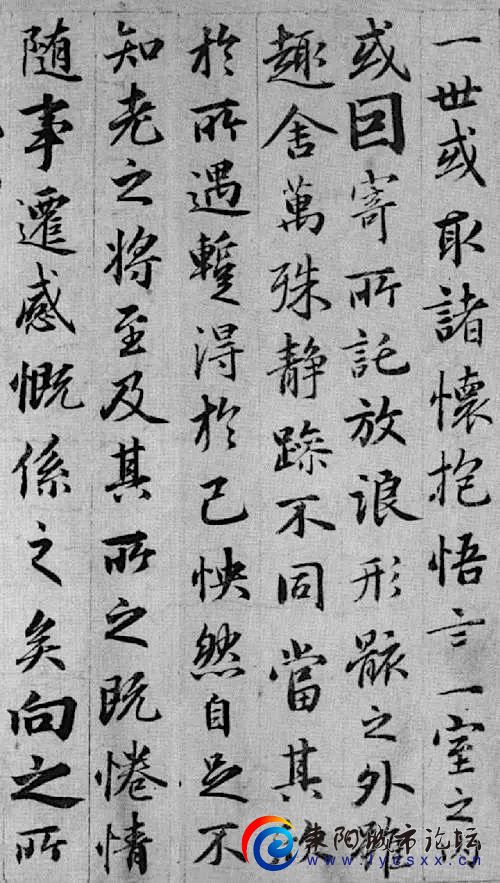 一世或取諸懷抱悟言一室之内
或因寄所託放浪形骸之外雖
趣舍萬殊静躁不同當其
於所遇蹔得於己怏然自足不
知老之將至及其所之既惓情
随事遷感慨係之矣向之所
阳城市论坛
www.lycsxx.cn